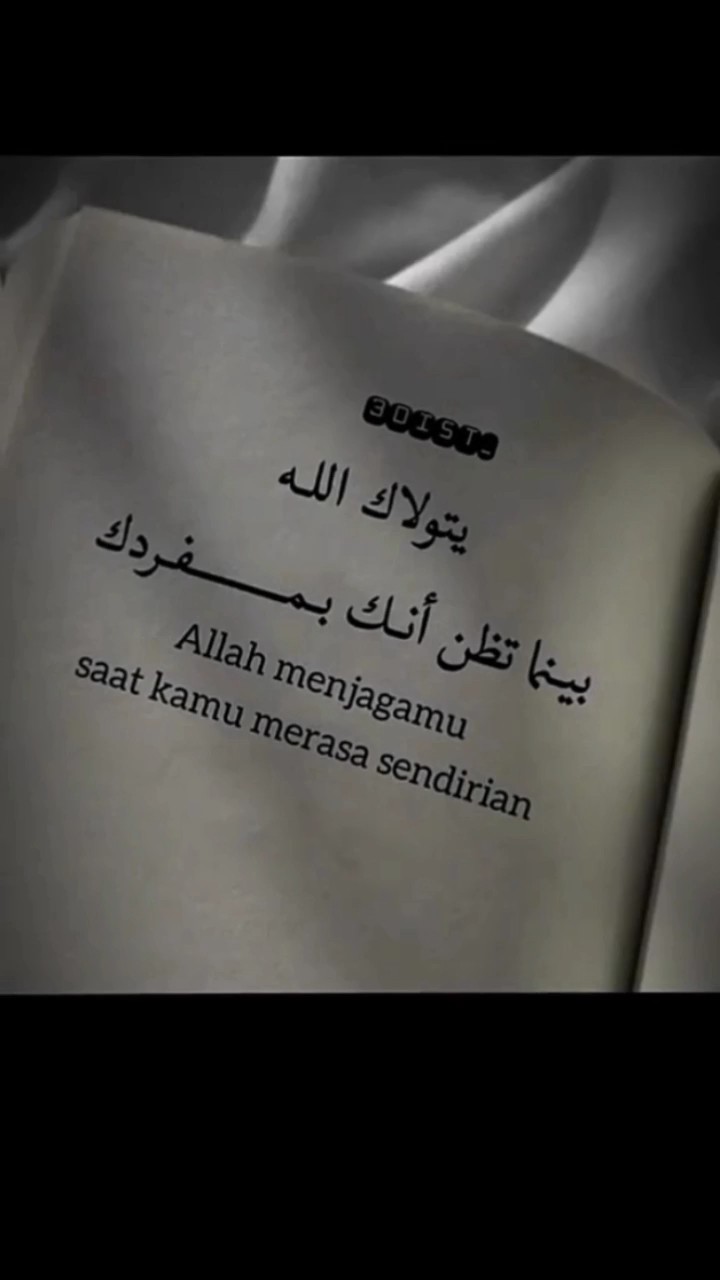 3OIST9
يتولاك اللـه
بينما تظن أنـك بـمـــــفـردك
Allah menjagamu
saat kamu merasa sendirian